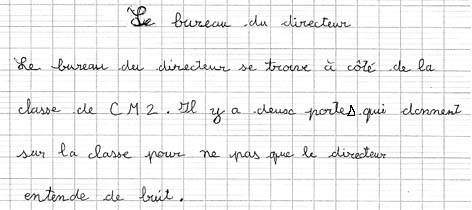 Le bureau du directeur
Le bureau du directeur se trouve à côté de la
classe de CM2. Il y a deux portes qui donnent
sur la classe pour ne pas que le directeur
entende de bruit.